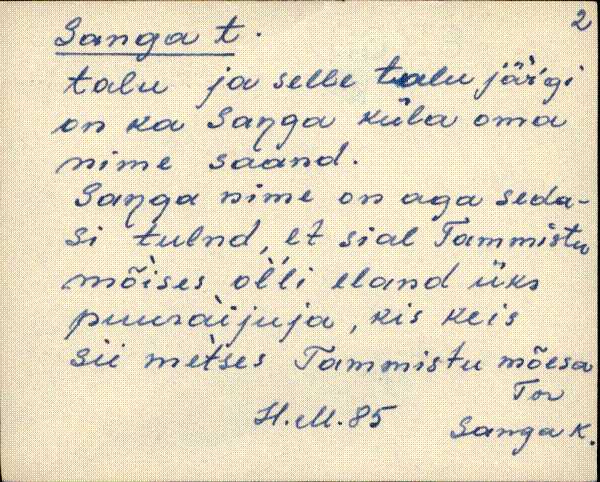 2
Sanga t.
talu ja selle talu järgi
on ka Saŋga küla oma
nime saand.
Saŋga nime on aga seda-
si tulnd, et sial Tammistu
mõises òĺli eland üks
puuraìjuja, kis keis
sii mètses Tammistu mõesa
Tor
H.M.85 Sanga k.